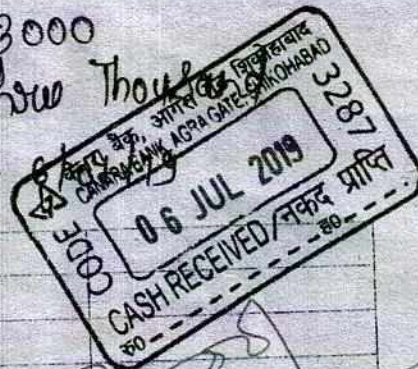 3000
Three Thousand
केनरा बैंक, आगरा गेट, शिकोहाबाद
CANARA BANK, AGRA GATE, SHIKOHABAD
CODE
3287
06 JUL 2019
CASH RECEIVED/नकद प्राप्ति
रु0